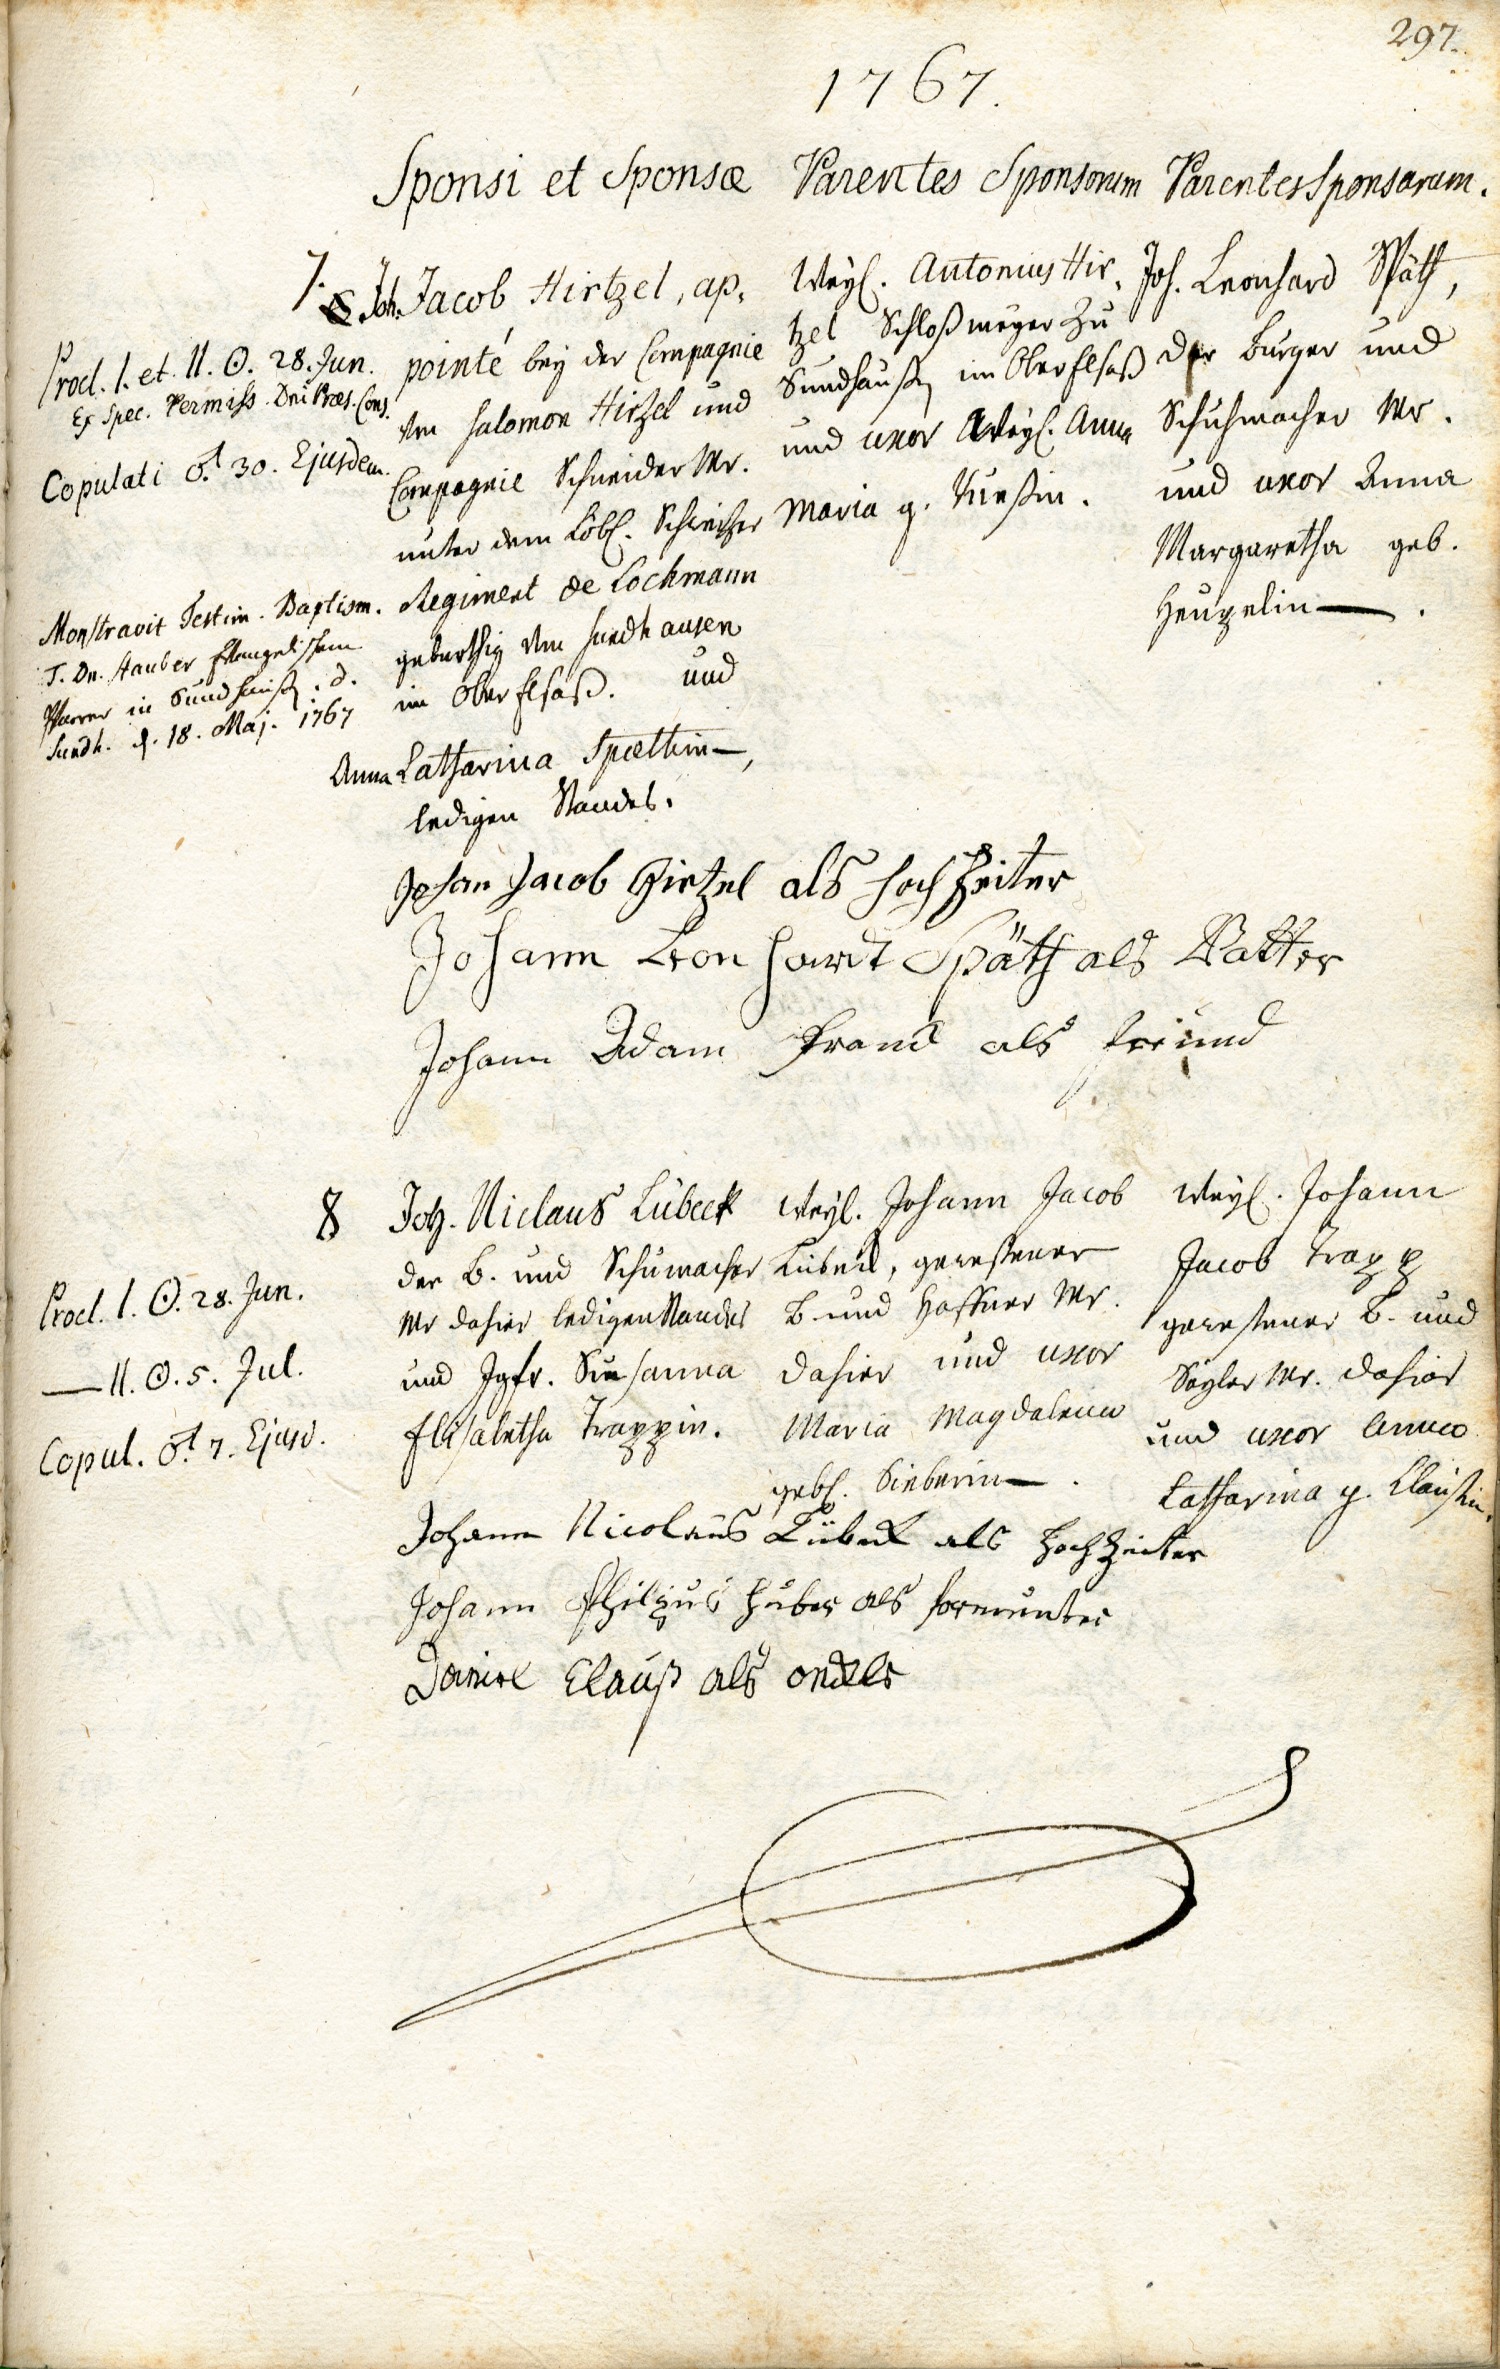 297.
1767.
Sponsi et Sponsæ
Parentes Sponsorum
Parentes Sponsarum.
7.
Joh. Jacob Hirtzel, ap-
pointé bey der Compagnie
von Salomon Hirzel und
Compagnie Schneider Mr.
unter dem Löbl. Schweitzer
Regiment de Lochmann
gebürthig von Sundhausen
im Ober Elsaß. und
Anna Catharina Spæthin,
ledigen Standes.
Weyl. Antonius Hir-
tzel Schloßmeyer zu
Sundhaußen im Ober Elsaß
und uxor Weyl. Anna
Maria g.
Joh. Leonhard Späth,
der Burger und
Schuhmacher Mr.
und uxor Anna
Margaretha geb.
Heupelin.
Procl. I. et. II. ☉. 28. Jun.
Ex Spec. Permiss. Dni Præs. Cons.
Copulati ♂. 30. Ejusdem.
Monstravit Testim. Baptism.
T. Dn. Stauber Evangelischem
Pfarrer in Sundhaußen. d.
Sundh. d. 18. Maj. 1767
Johan Jacob Hirtzel als Hochzeiter
Johann Leonhardt Späth als Vatter
Johann Adam Franck als freund
8
Joh. Niclaus Lübeck
der B. und Schumacher
Mr dahier ledigen Standes
und Jgfr. Susanna
Elisabetha Trappin.
Weyl. Johann Jacob
Lübeck, gewesener
B. und Haffner Mr.
dahier und uxor
Maria Magdalena
gebl. Sieberin.
Weyl. Johann
Jacob Trapp
gewesener B. und
Säyler Mr. dahier
und uxor Anna
Catharina g. Claußin.
Procl. I. ☉. 28. Jun.
— II. ☉. 5. Jul.
Copul. ♂. 7. Ejusd.
Johann Nicolaus Lübeck als Hochzeiter
Johann Philipus Huber als formunter
Daniel Clauß als